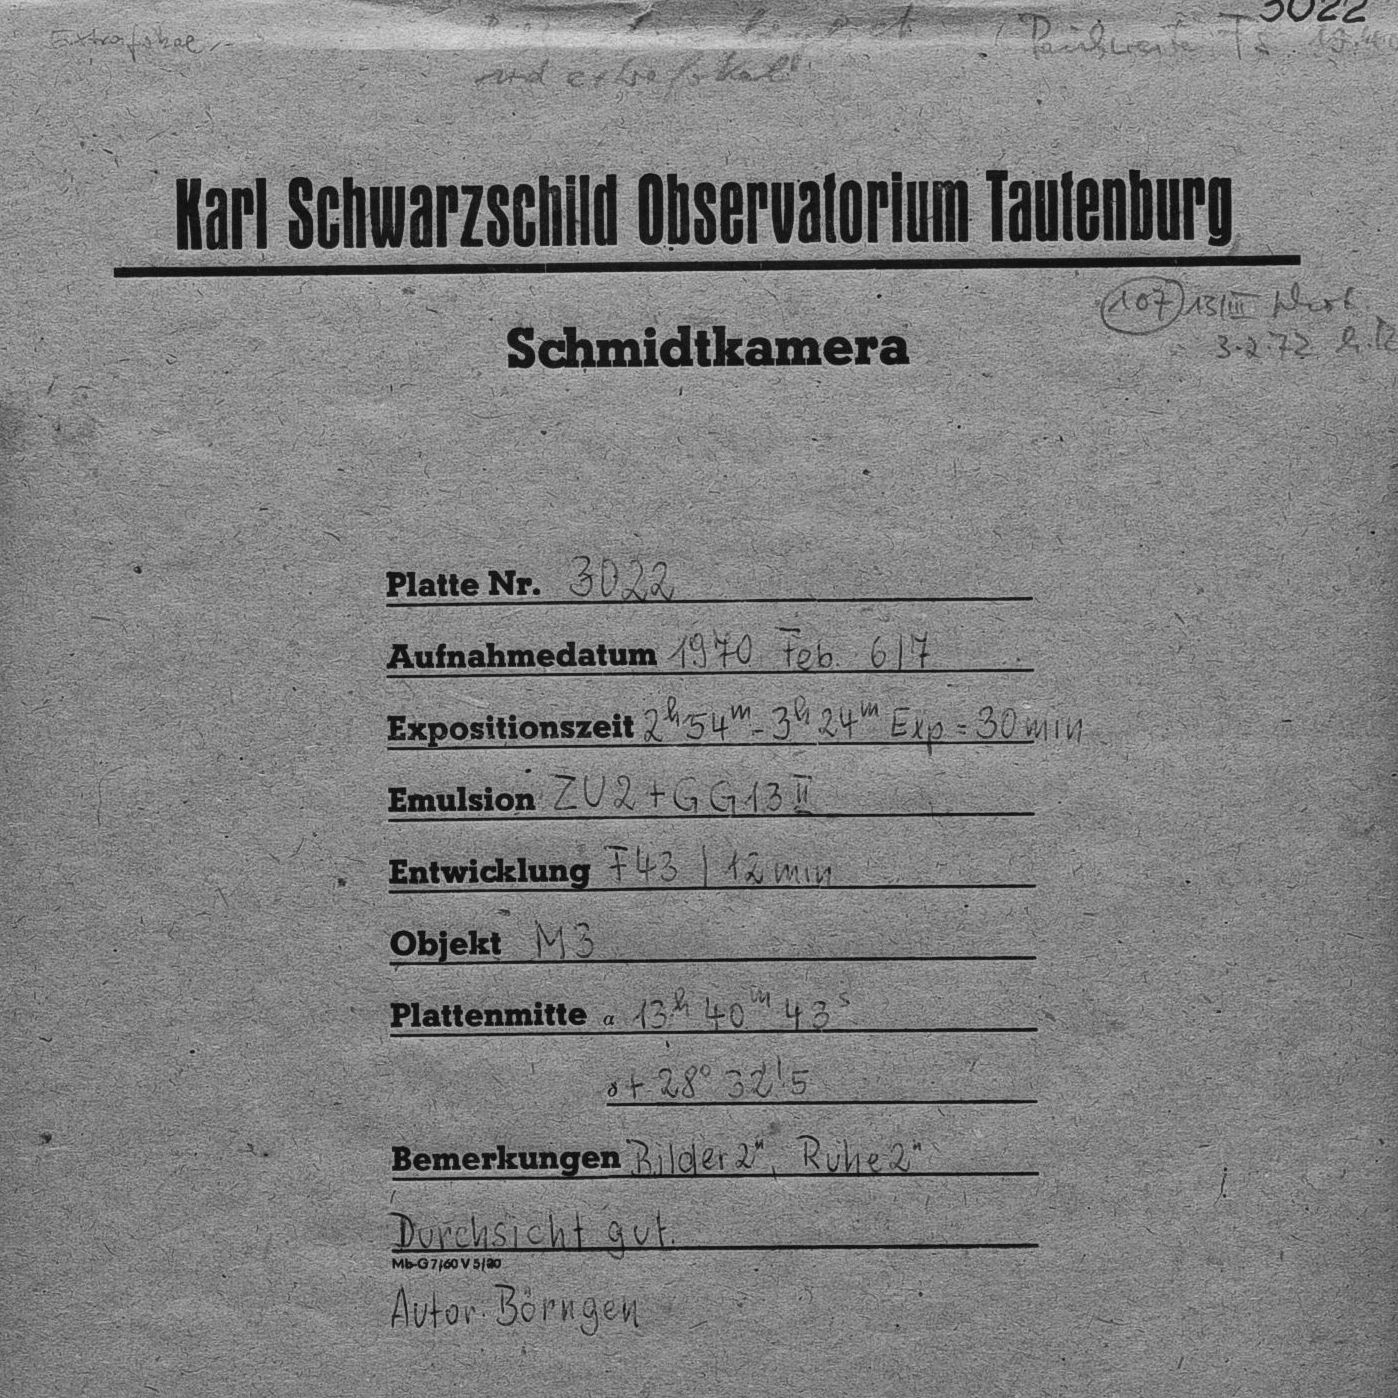 3022
Extrafokal
und extrafokal"
Karl Schwarzschild Observatorium Tautenburg
107 13/III
Schmidtkamera
3.2.72
Platte Nr. 3022
Aufnahmedatum 1970 Feb. 6/7
Expositionszeit 2h 54m - 3h 24m Exp = 30 min
Emulsion ZU2 + GG13 II
Entwicklung F43 | 12 min
Objekt M3
Plattenmitte α 13h 40m 43s
δ + 28° 32'5
Bemerkungen Bilder 2", Ruhe 2"
Durchsicht gut.
Mb-G 7/60 V 5/20
Autor. Börngen